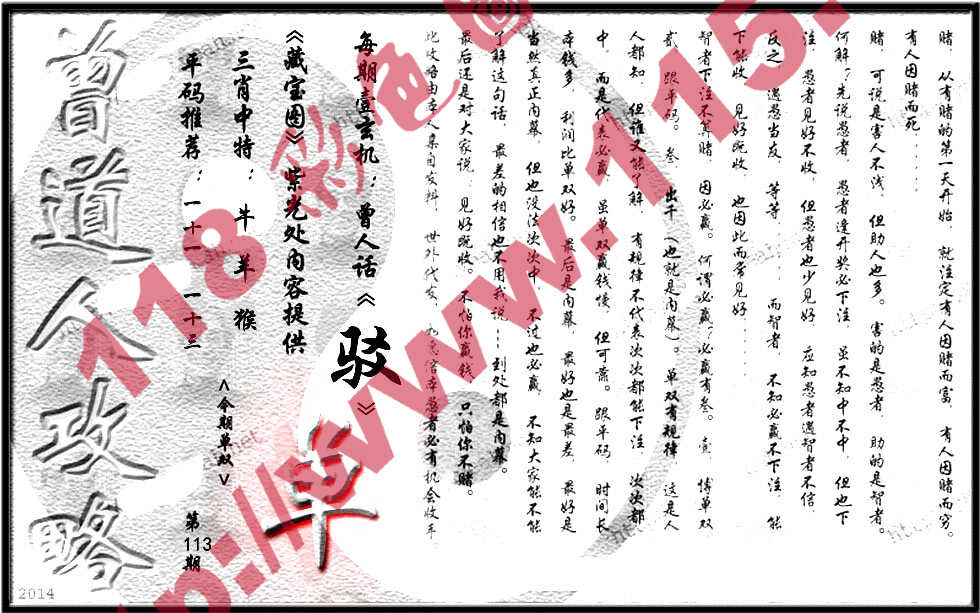 赌，从有赌的第一天开始，就注定有人因赌而富，有人因赌而穷。
有人因赌而死......
赌，可说是害人不浅，但助人也多。害的是愚者，助的是智者。
何解？先说愚者，愚者逢开奖必下注，虽不知中不中，但也下
注，愚者见好不收，但愚者也少见好，应知愚者遇智者不信，
反之，遇愚当友，等等......而智者，不知必赢不下注，能
下能收，见好既收，也因此而常见好......
智者下注不算赌，因必赢。何谓必赢？必赢有叁。壹，博单双
贰，跟平码。叁，出千（也就是内幕）。单双有规律，这是人
人都知，但谁又能了解，有规律不代表次次都能下注，次次都
中，而是代表必赢，虽单双赢钱慢，但可靠。跟平码，时间长
本钱多，利润比单双好。最后是内幕，最好也是最差，最好是
当然真正内幕，但也没法次次中，不过也必赢，不知大家能不能
了解这句话，最差的相信也不用我说......到处都是内幕。
最后还是对大家说：见好既收。不怕你赢钱，只怕你不赌。
此攻略由本人集自资料，世外代友，如愚信本愚者必有机会收车
每期壹玄机：曾人话《驳》
《藏宝图》紫光处内容提供
三肖中特：牛羊猴
平码推荐：一十一 一十三
<今期单双>
单
第113期
曾道人攻略
2014
118彩色
http://www.115.